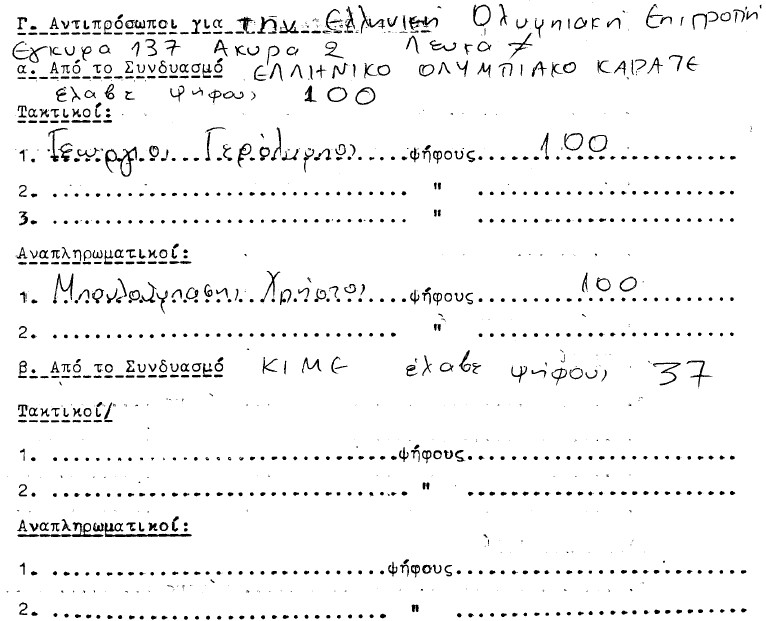 Γ. Αντιπρόσωποι για την Ελληνική Ολυμπιακή Επιτροπή
Εγκυρα 137 Ακυρα 2 Λευκα 7
α. Από το Συνδυασμό ΕΛΛΗΝΙΚΟ ΟΛΥΜΠΙΑΚΟ ΚΑΡΑΤΕ
έλαβε ψήφους 100
Τακτικοί:
1. Γεωργιος Γερόλυμπος ψήφους 100
2. "
3. "
Αναπληρωματικοί:
1. Μπουλούμπασης Χρήστος ψήφους 100
2. "
β. Από το Συνδυασμό ΚΙΜΕ έλαβε ψήφους 37
Τακτικοί/
1. ψήφους
2. "
Αναπληρωματικοί:
1. ψήφους
2. "